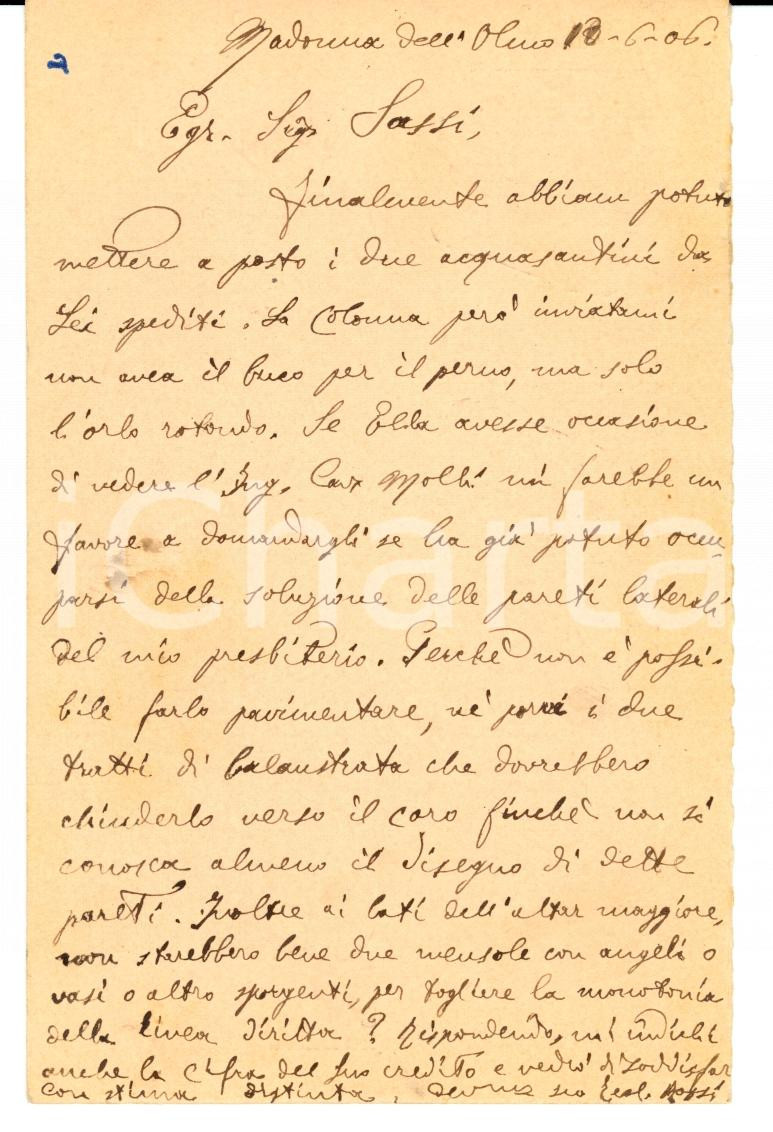 Madonna dell'Olmo 12-6-06.
Egr. Sigr Sassi,
Finalmente abbiam potuto
mettere a posto i due acquasantini da
Lei spediti. La colonna però inviatami
non avea il buco per il perno, ma solo
l'orlo rotondo. Se Ella avesse occasione
di vedere l'Ing. Cav Molli mi farebbe un
favore a domandargli se ha già potuto occu-
parsi della soluzione delle pareti laterali
del mio presbiterio. Perchè non è possi-
bile farlo pavimentare, nè porvi i due
tratti di balaustrata che dovrebbero
chiuderlo verso il coro finchè non si
conosca almeno il disegno di dette
pareti. Inoltre ai lati dell'altar maggiore,
non starebbero bene due mensole con angeli o
vasi o altro sporgenti, per togliere la monotonia
della linea diritta? Rispondendo, mi indichi
anche la cifra del suo credito e vedrò di soddisfar
con stima distinta, devmo suo Teol. Rossi
iCharta